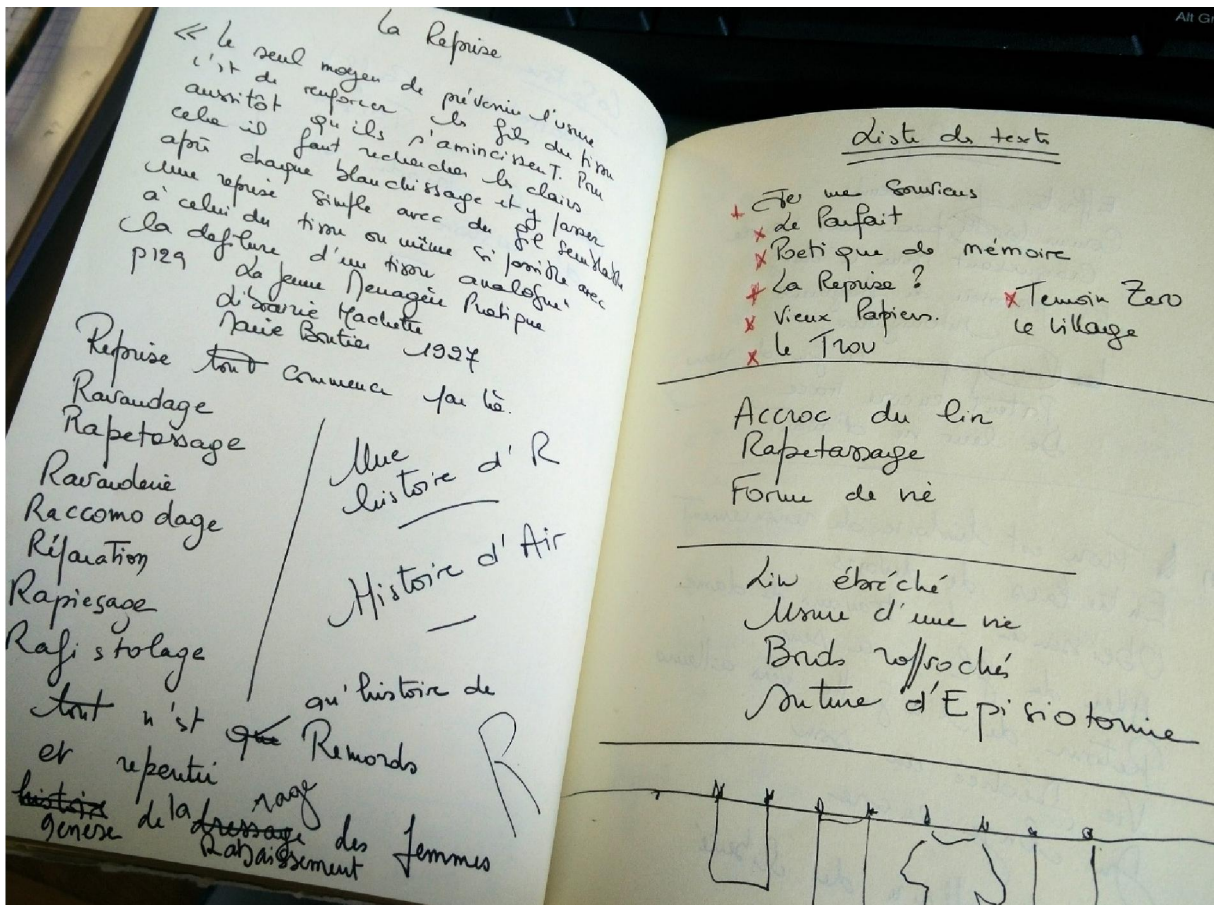 La Reprise
« Le seul moyen de prévenir l'usure
c'est de renforcer les fils du tissu
aussitôt qu'ils s'amincissent. Pour
cela il faut rechercher les clairs
après chaque blanchissage et y passer
une reprise simple avec du fil semblable
à celui du tissu ou même si possible avec
la defilure d'un tissu analogue
p129 La Jeune Menagère Pratique
Librairie Hachette
Marie Boutier 1927
Reprise tout commence par là.
Ravaudage
Rapetassage
Ravauderie
Raccomodage
Réparation
Rapieçage
Rafistolage
Une
histoire d'R
Histoire d'Air
qu'histoire de
tout n'est que Remords
R
et repentir
rage
histoire de la dressage des femmes
genèse Rabaissement
Alt Gr
Liste des texts
Je me Souviens
Le Parfait
Poetique de mémoire
La Reprise ?
Vieux Papiers.
Le Trou
Temoin Zero
Le Village
Accroc du lin
Rapetassage
Forme de vie
Lin ébréché
Usure d'une vie
Bords rapprochés
Suture d'Episiotomie